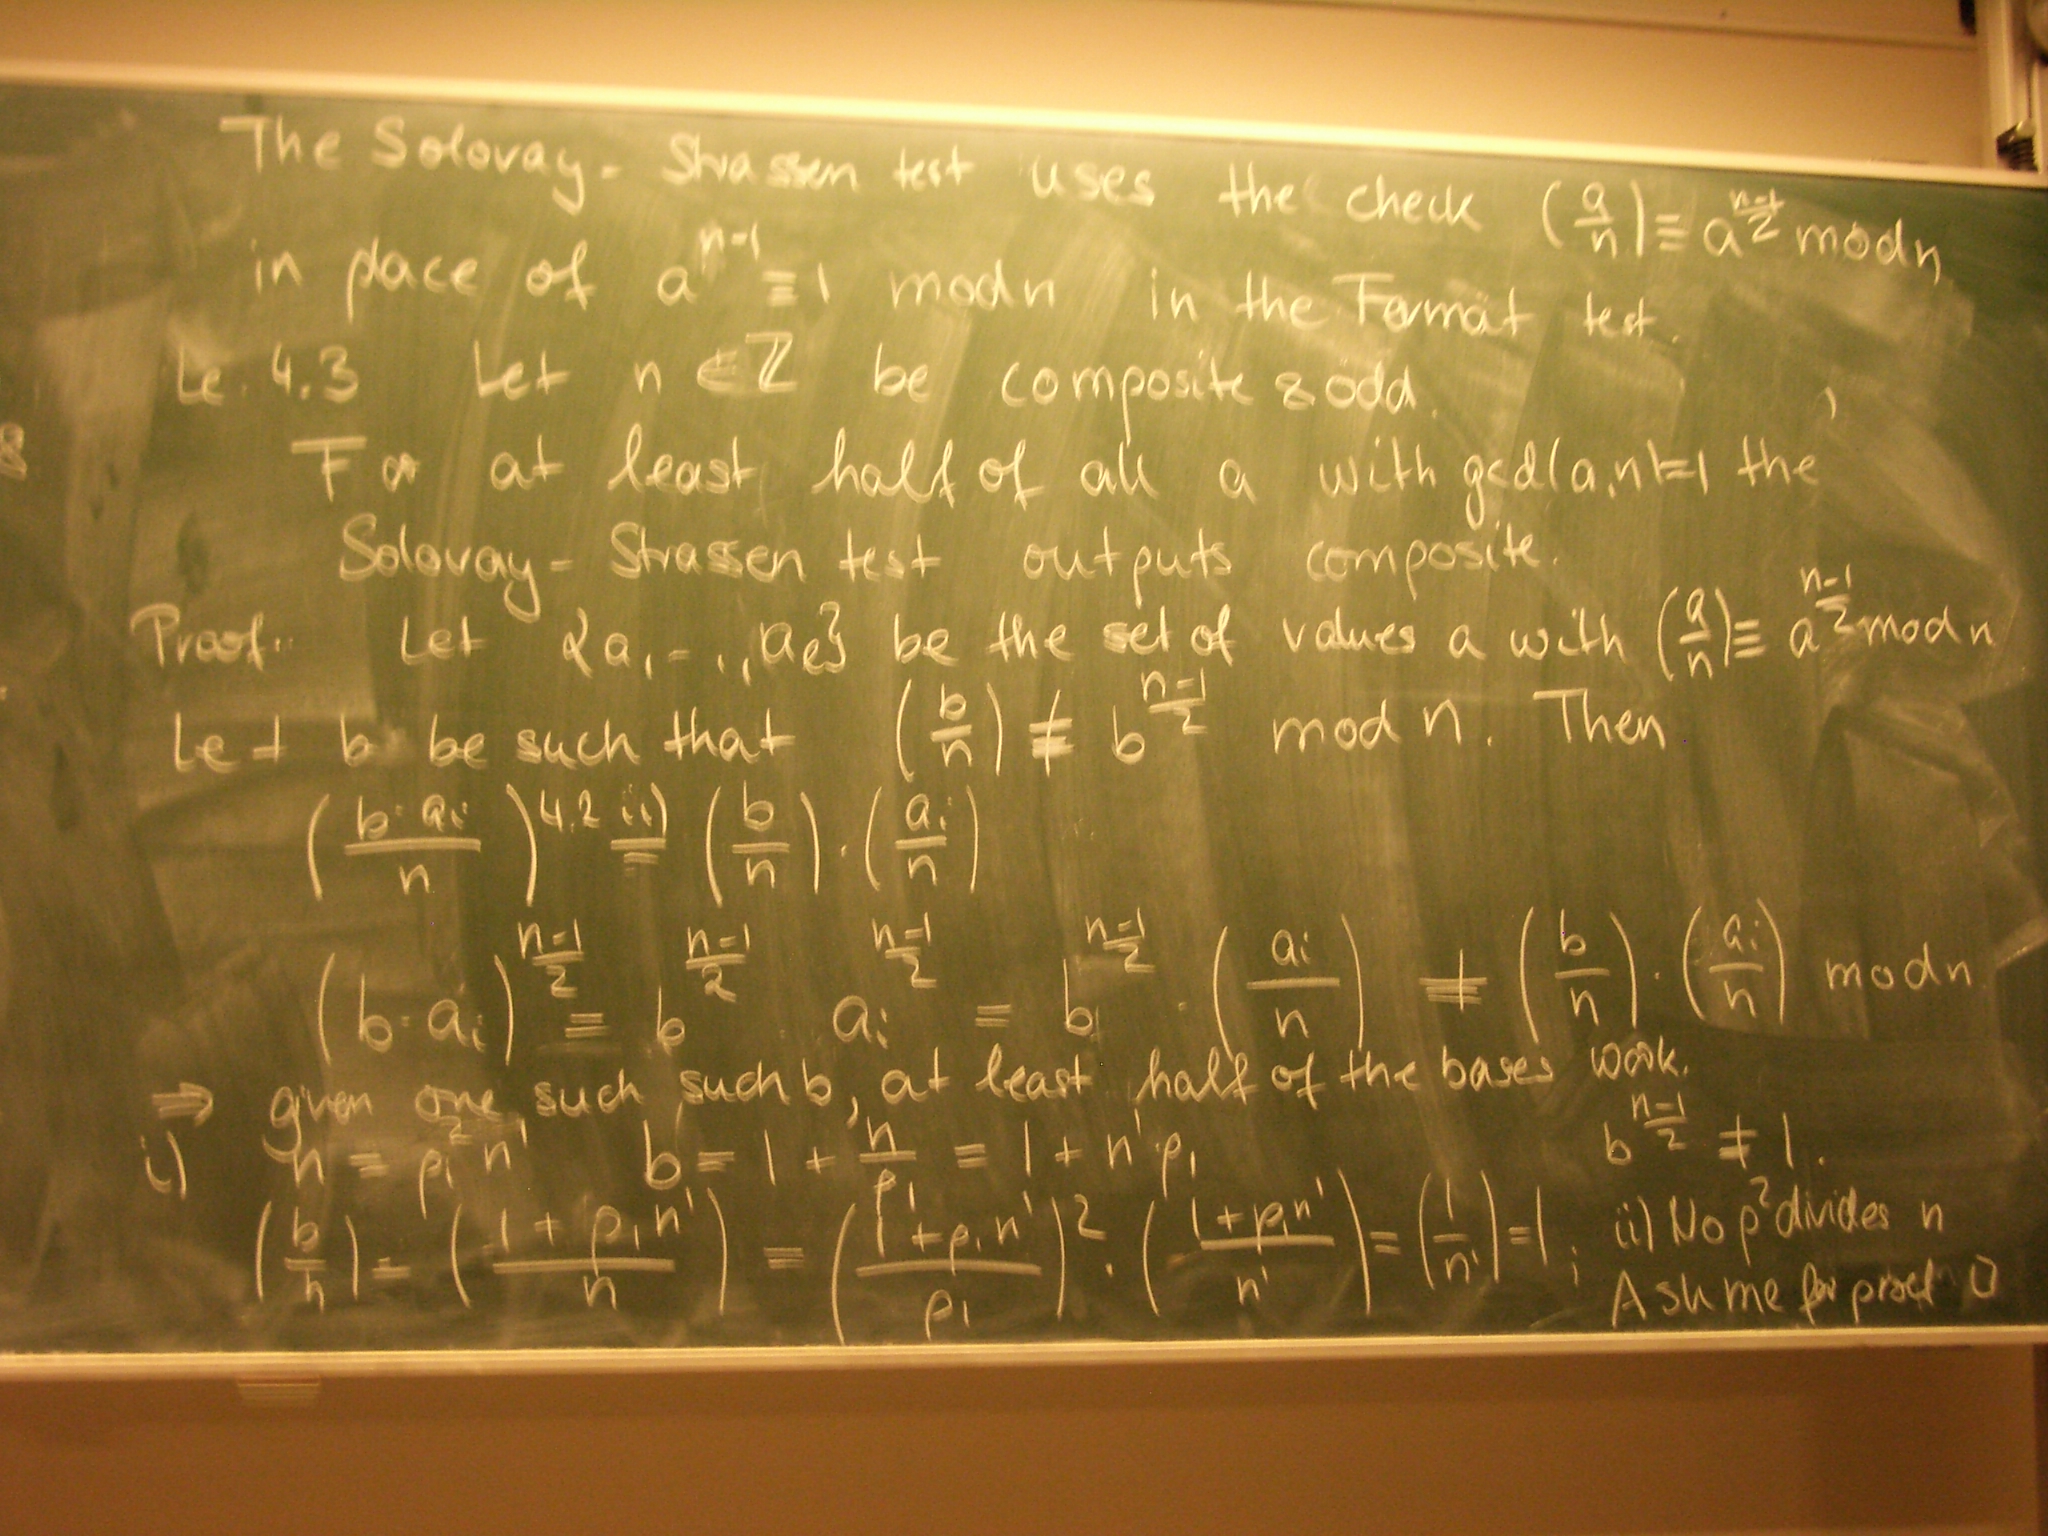 The Solovay-Strassen test uses the check (a/n) ≡ a^((n-1)/2) mod n
in place of a^(n-1) ≡ 1 mod n in the Fermat test.
Le. 4.3 Let n ∈ Z be composite & odd.
For at least half of all a with gcd(a,n)=1 the
Solovay-Strassen test outputs composite.
Proof: Let {a₁-.,,aₑ} be the set of values a with (a/n) ≡ a^((n-1)/2) mod n
Let b be such that (b/n) ≢ b^((n-1)/2) mod n. Then
(b·aᵢ/n) 4.2 ii) = (b/n)·(aᵢ/n)
(b·aᵢ)^((n-1)/2) = b^((n-1)/2) aᵢ^((n-1)/2) = b^((n-1)/2)·(aᵢ/n) ≢ (b/n)·(aᵢ/n) mod n
⇒ given one such such b, at least half of the bases work.
i) n = p₁²n' b = 1 + n/p₁ = 1 + n'p₁ b^((n-1)/2) ≠ 1.
(b/n) = (1+p₁n'/n) = (1+p₁n'/p₁)²·(1+p₁n'/n') = (1/n') = 1; ii) No p² divides n
Ask me for proof □